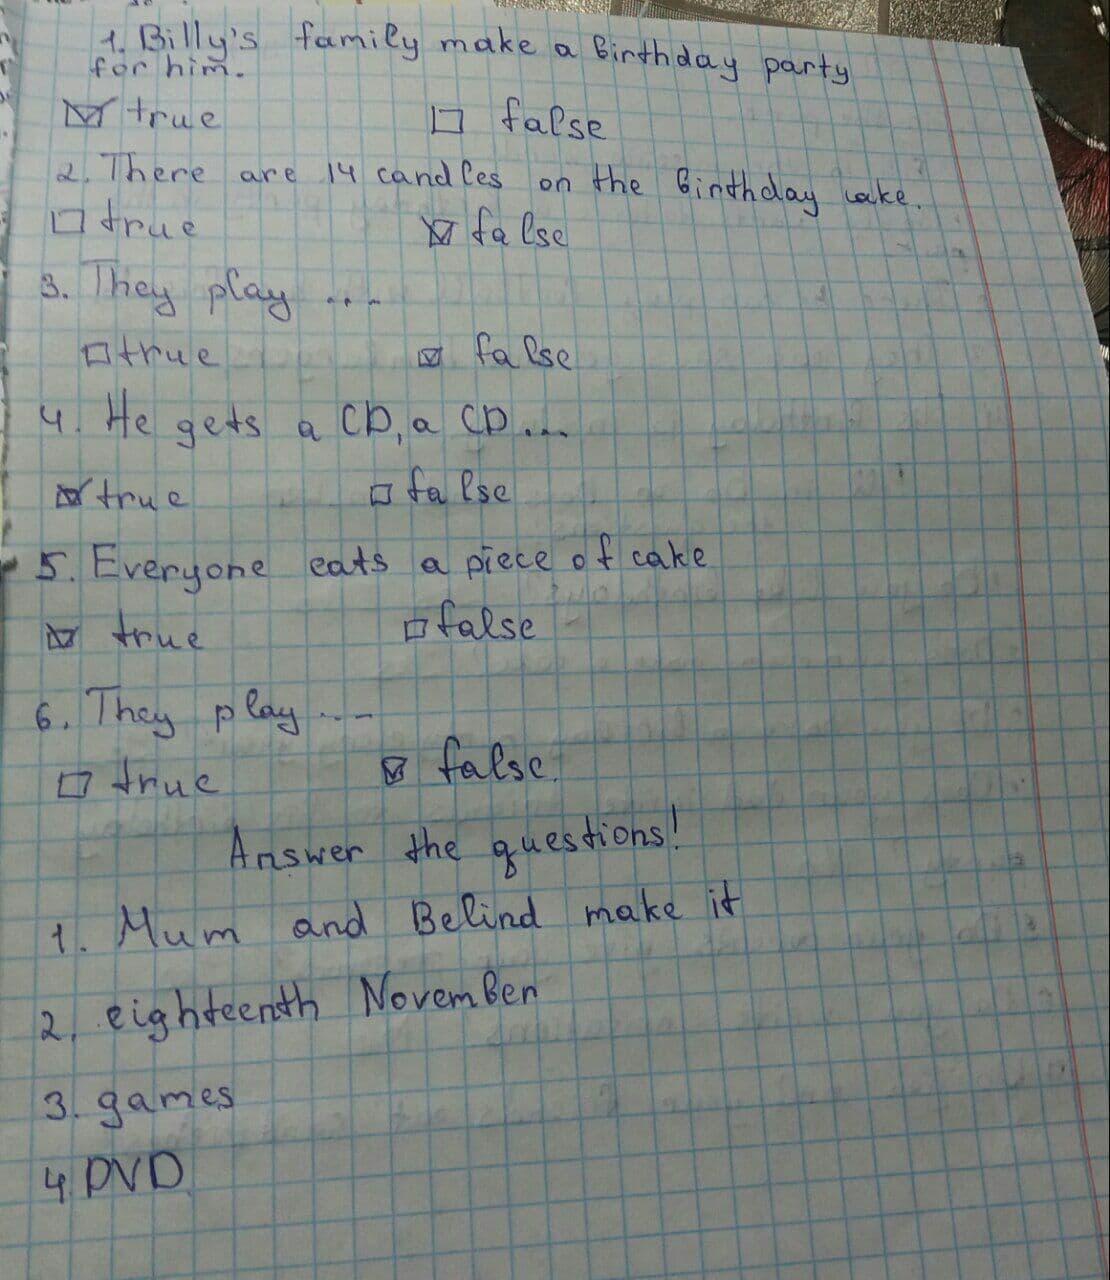 1. Billy's family make a birthday party
for him.
☑ true ☐ false
2. There are 14 candles on the birthday cake.
☐ true ☑ false
3. They play ...
☐ true ☑ false
4. He gets a CD, a CD...
☑ true ☐ false
5. Everyone eats a piece of cake
☑ true ☐ false
6. They play ...
☐ true ☑ false.
Answer the questions!
1. Mum and Belind make it
2. eighteenth November
3. games
4 DVD